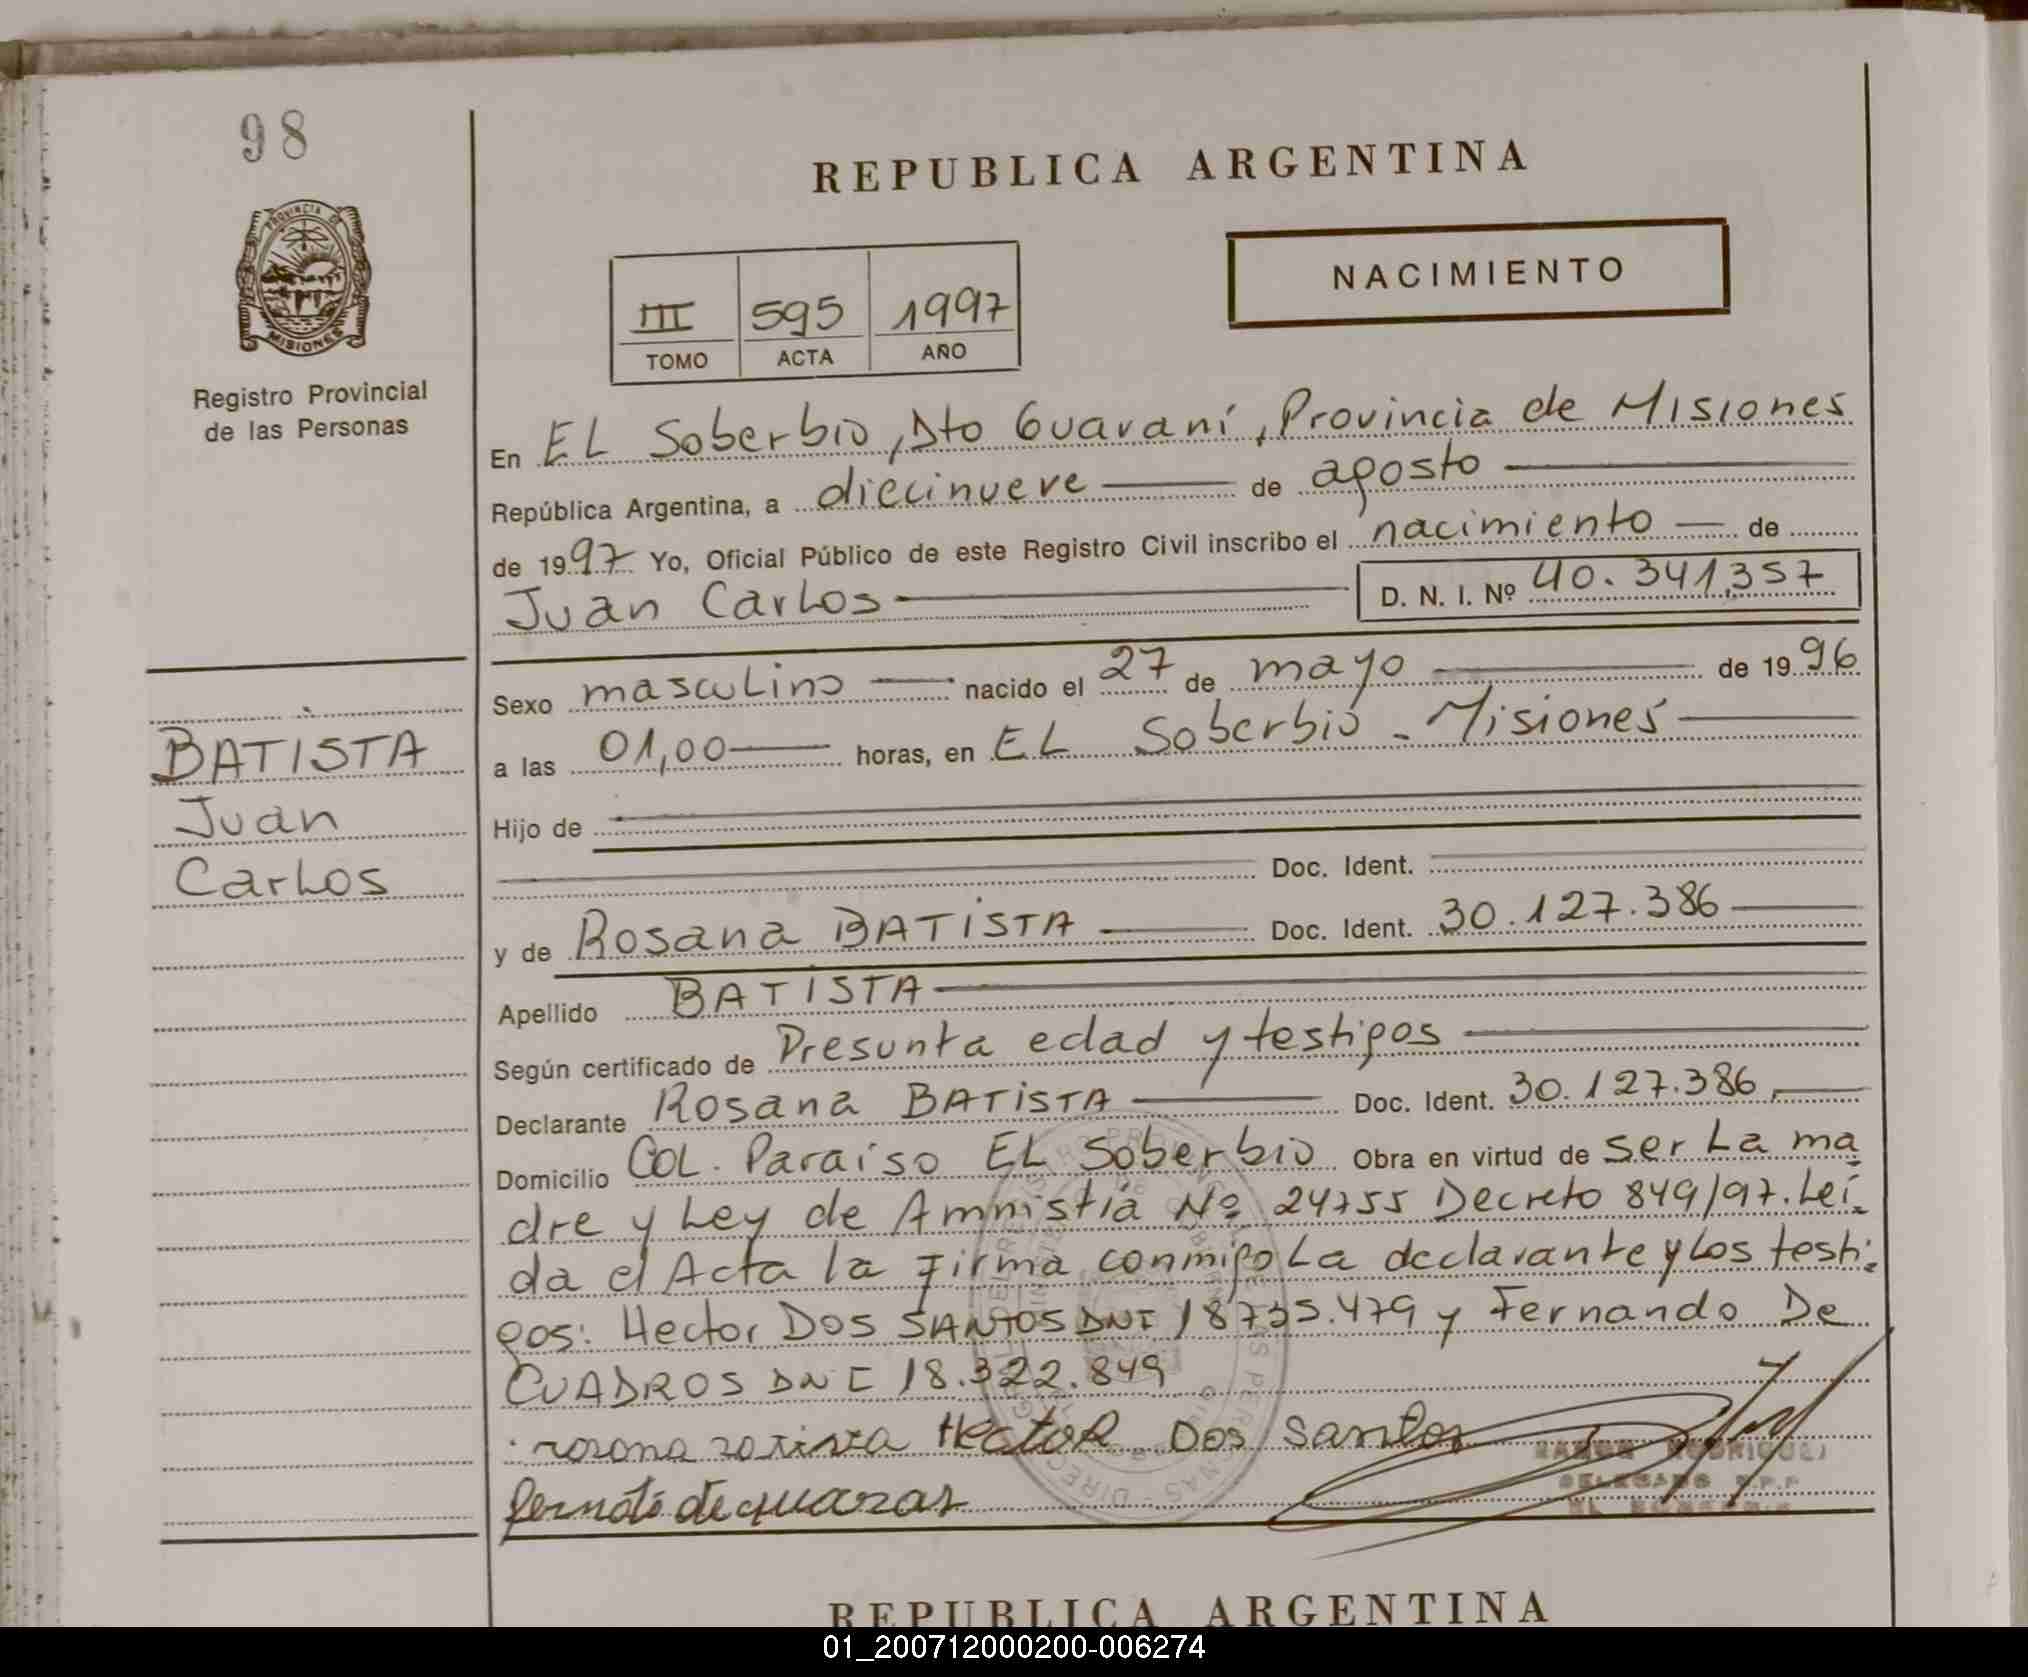 98
REPUBLICA ARGENTINA
PROVINCIA DE
MISIONES
NACIMIENTO
III 595 1997
TOMO ACTA AÑO
Registro Provincial
de las Personas
En EL Soberbio, Dto Guaraní, Provincia de Misiones
República Argentina, a diecinueve de agosto
de 1997 Yo, Oficial Público de este Registro Civil inscribo el nacimiento de
Juan Carlos D. N. I. Nº 40.341,357
Sexo masculino nacido el 27 de mayo de 1996
a las 01,00 horas, en EL Soberbio - Misiones
BATISTA
Juan
Carlos
Hijo de
Doc. Ident.
y de Rosana BATISTA Doc. Ident. 30.127.386
Apellido BATISTA
Según certificado de Presunta edad y testigos
Declarante Rosana BATISTA Doc. Ident. 30.127.386
Domicilio COL. Paraiso EL Soberbio Obra en virtud de ser La ma
dre y Ley de Amnistía Nº 24755 Decreto 849/97. Leí-
da el Acta la Firma conmigo La declarante y los testi-
gos: Hector DOS SANTOS DNI 18735.479 y Fernando De
CUADROS DNI 18.322.849
Hector Dos Santos
REPUBLICA ARGENTINA
01_200712000200-006274